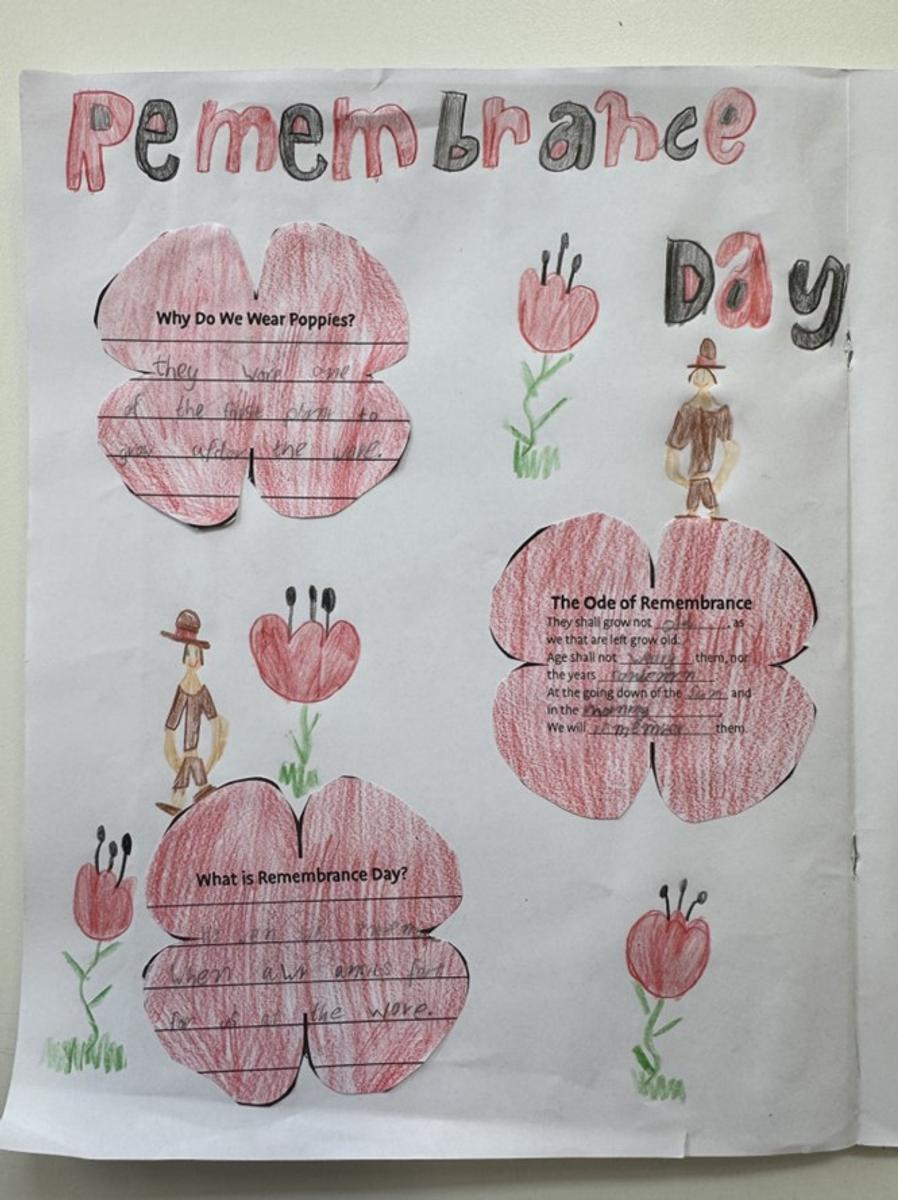 Remembrance
Day
Why Do We Wear Poppies?
they wore one
of the first plant to
grow after the wore.
The Ode of Remembrance
They shall grow not old, as
we that are left grow old.
Age shall not weary them, nor
the years
At the going down of the sun and
in the morning
We will remember them.
What is Remembrance Day?
when awr armies
for us at the wore.